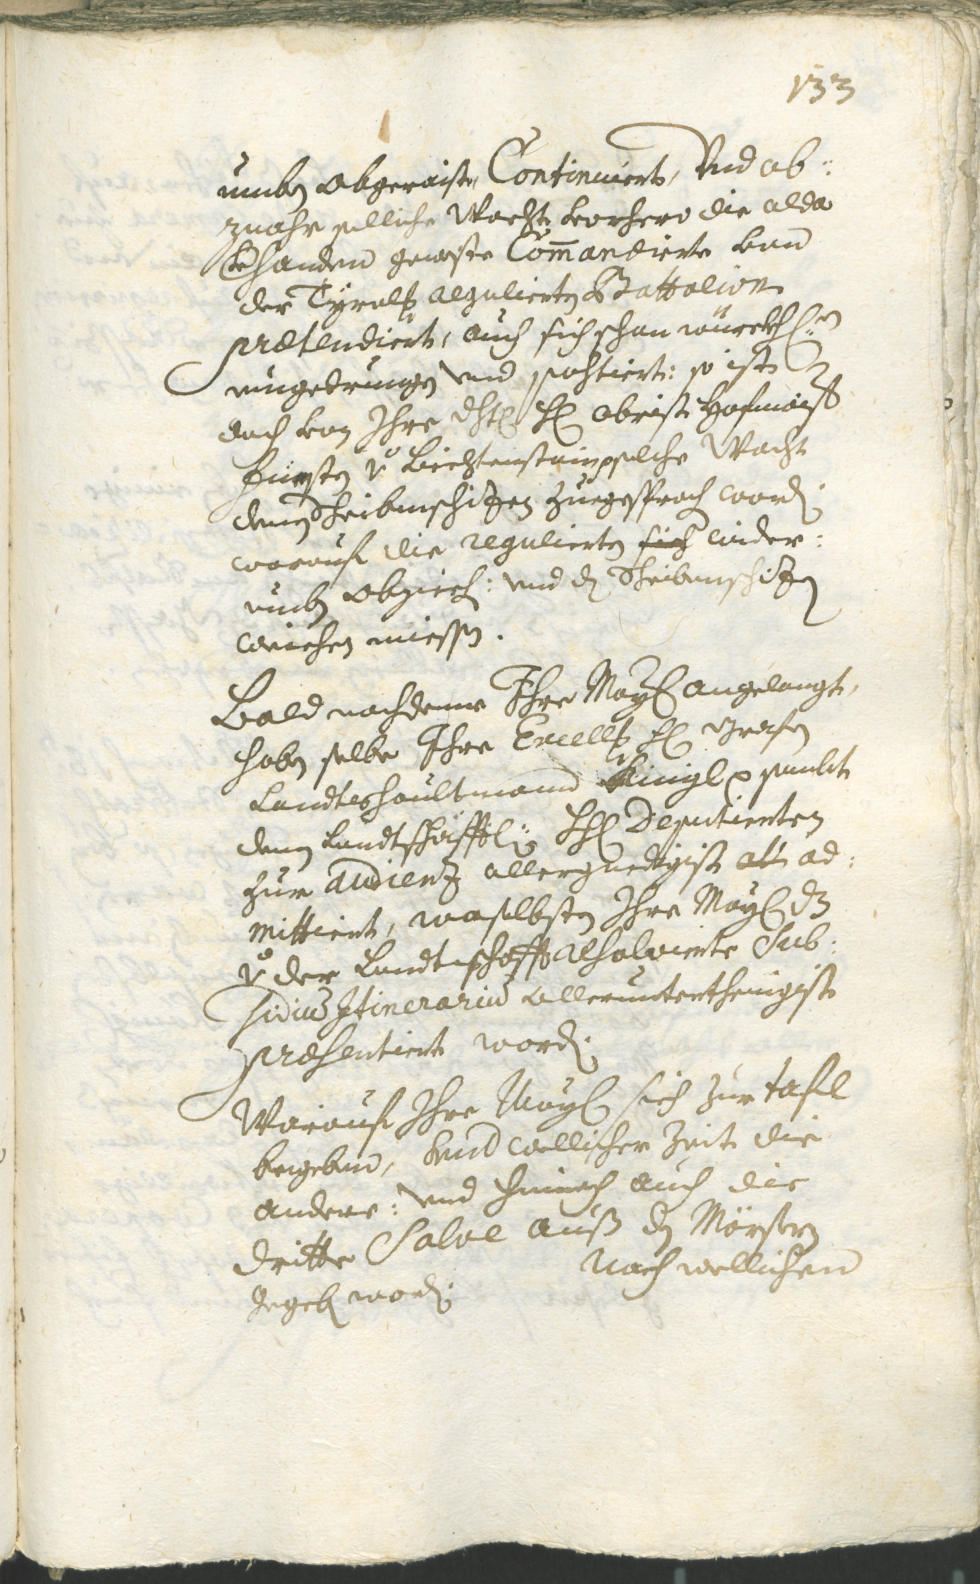 133
umben abgeraist, Continuiert, Und ob:
zwahr solliche Wacht vorhero die alda
Verhanden geweste Commandierte von
der Tyrolis: regulierten Battalion
prætendiert, auch sich schan würckhl:n
eingetrungen und postiert: so ist
doch von Ihro dhl: H: Obrist Hofmaist:
Fürsten v: Liechtenstain solche Wacht
denen Scheibenschizen zuegesprochen word:
worauf die regulierten wider:
umb abziech: und dn Scheibenschizen
weichen miessen.
Bald nachdeme Ihro May: angelangt,
haben selbe Ihro Excell: H: Grafen
Landtshaubtmann Künigl sambt
denen Landtschafftl: HH: Deputierten
zur Audienz allergnedigist ad:
mittiert, woselbsten Ihro May: dz
v: der Landtschafft absolvierte Sub:
sidium Itinerarium allerunterthenigist
præsentiert word:
Worauf Ihro May: sich zur tafl
begeben, Und wellicher Zeit die
andere: und hernach auch die
dritte Salve auß dn Mörsern
gegeb: word:
Nach wellichen